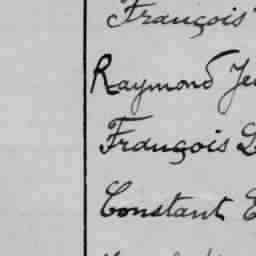 François
Raymond Je
François
Constant E